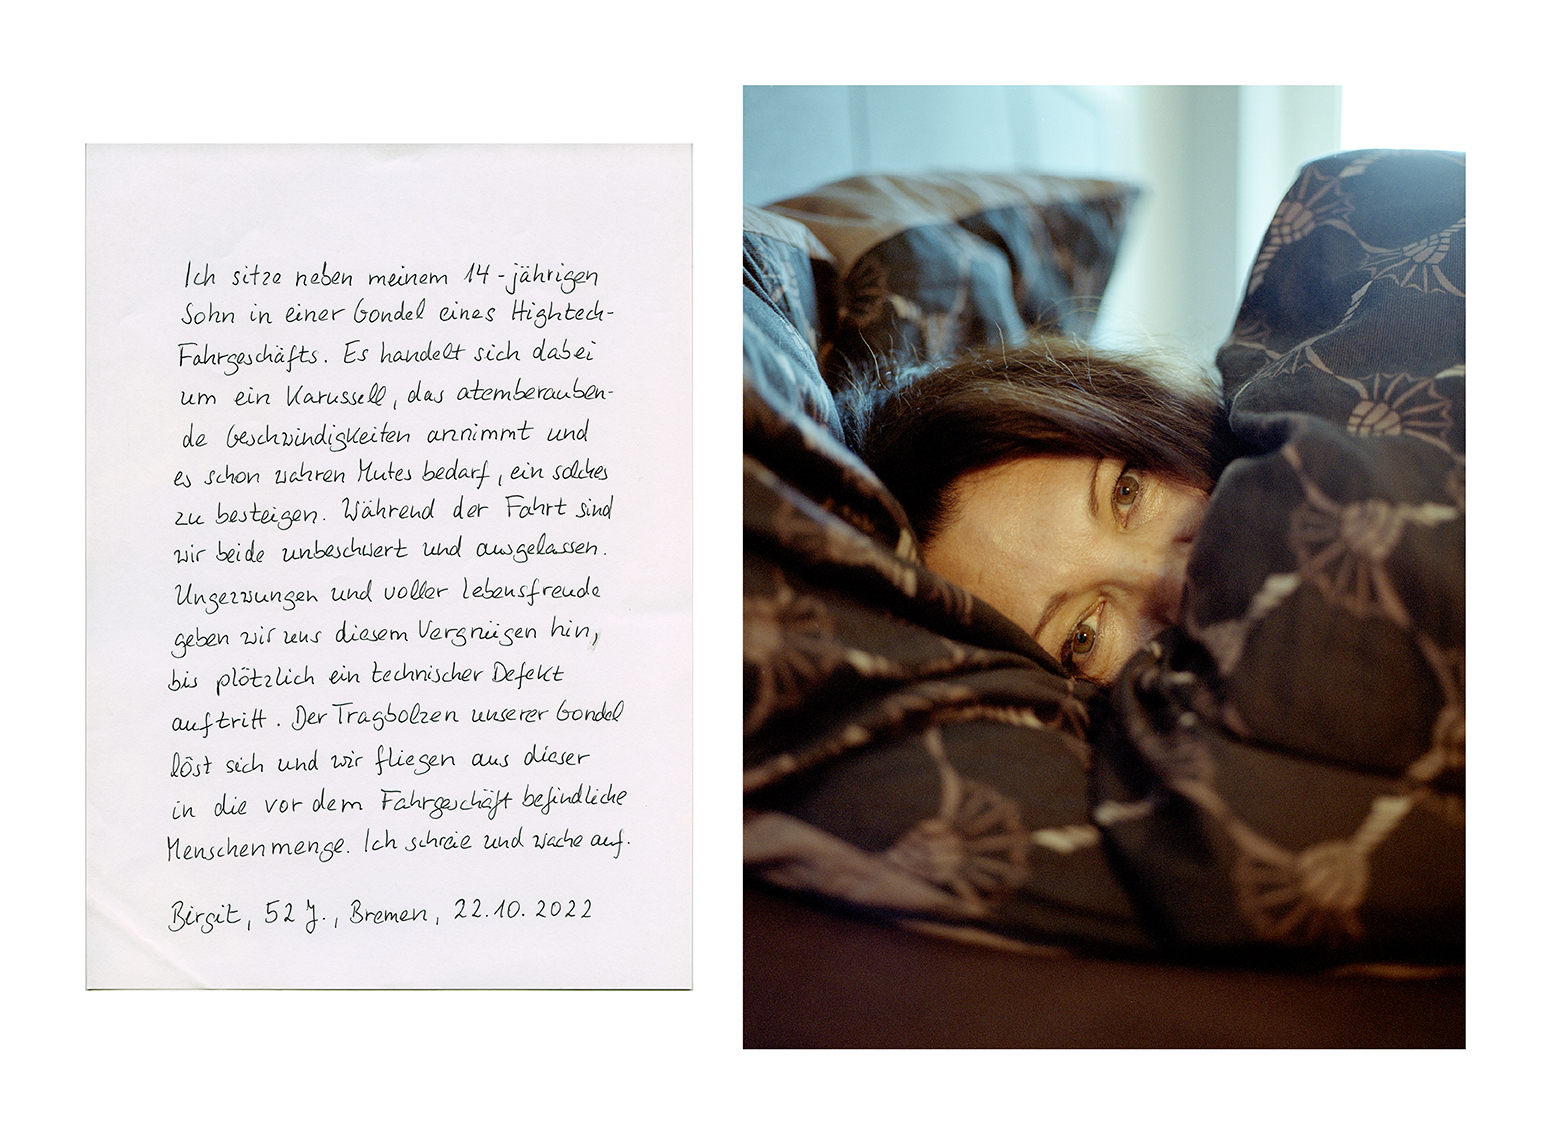 Ich sitze neben meinem 14-jährigen
Sohn in einer Gondel eines Hightech-
Fahrgeschäfts. Es handelt sich dabei
um ein Karussell, das atemberauben-
de Geschwindigkeiten annimmt und
es schon wahren Mutes bedarf, ein solches
zu besteigen. Während der Fahrt sind
wir beide unbeschwert und ausgelassen.
Ungezwungen und voller Lebensfreude
geben wir uns diesem Vergnügen hin,
bis plötzlich ein technischer Defekt
auftritt. Der Tragbolzen unserer Gondel
löst sich und wir fliegen aus dieser
in die vor dem Fahrgeschäft befindliche
Menschenmenge. Ich schreie und wache auf.
Birgit, 52 J., Bremen, 22.10.2022